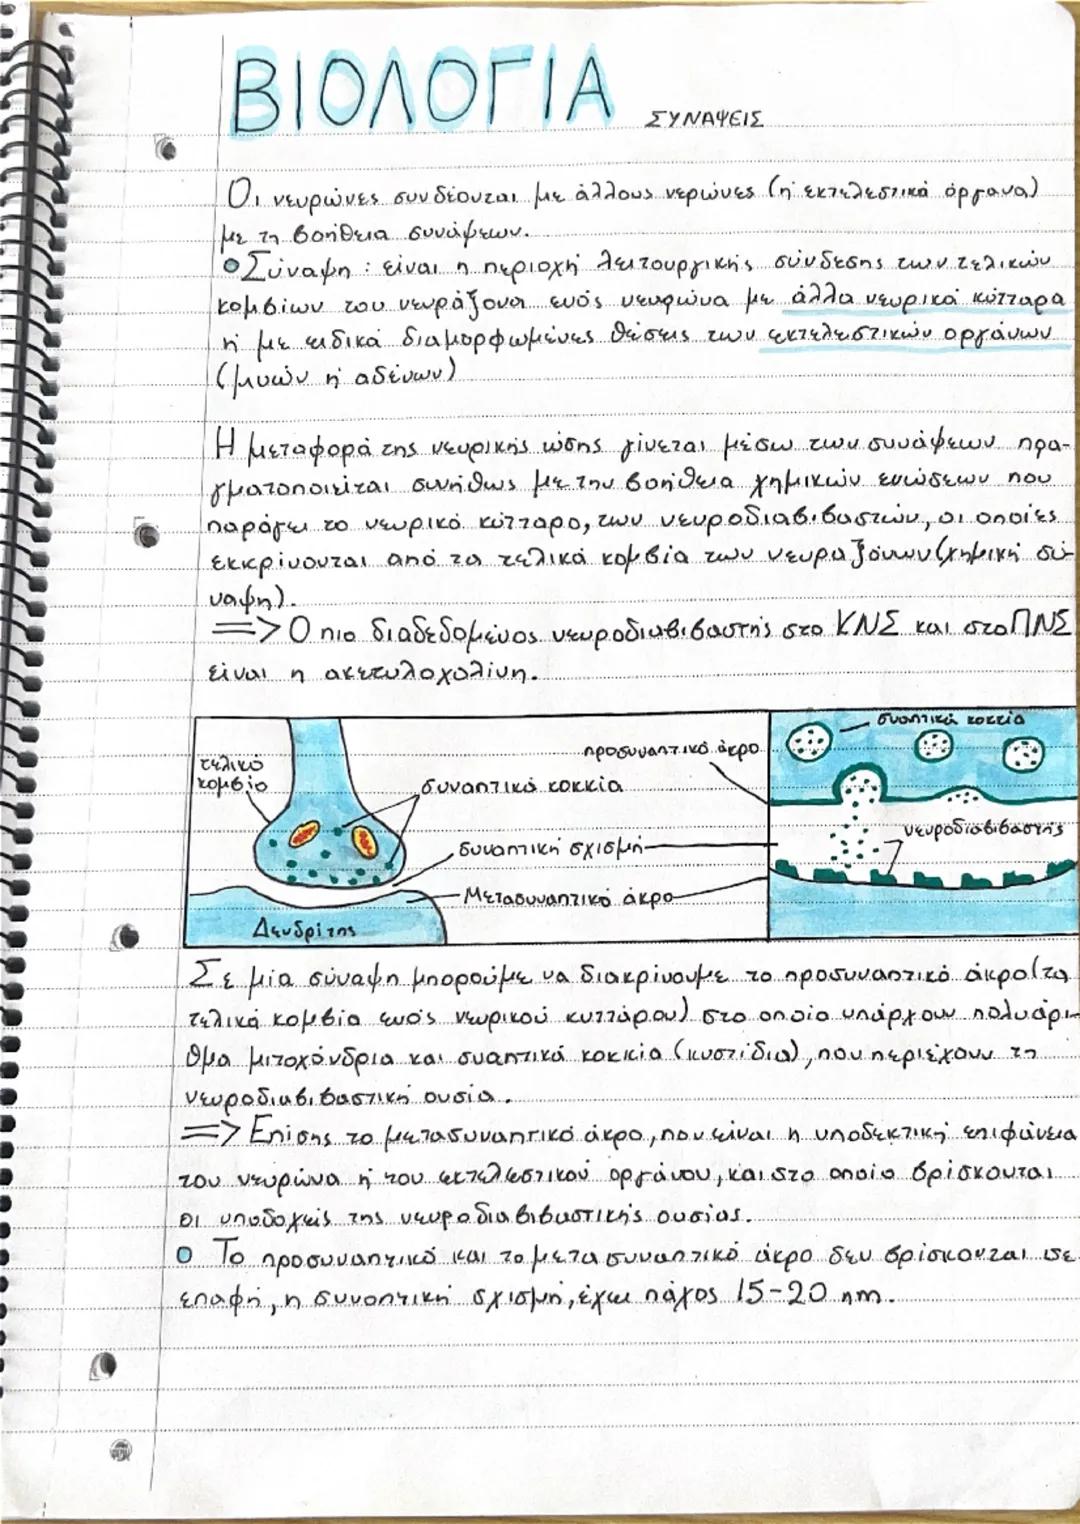 ΒΙΟΛΟΓΙΑ ΣΥΝΑΨΕΙΣ
Οι νευρώνες συνδέονται με άλλους νερώνες (ή εκτελεστικά όργανα)
με τη βοήθεια συνάψεων.
Σύναψη : είναι η περιοχή λειτουργικής σύνδεσης των τελικών
κομβίων του νευράξονα ενός νευρώνα με άλλα νευρικά κύτταρα
ή με ειδικά διαμορφωμένες θέσεις των εκτελεστικών οργάνων
(μυών ή αδένων)
Η μεταφορά της νευρικής ώσης γίνεται μέσω των συνάψεων πρα-
γματοποιείται συνήθως με την βοήθεια χημικών ενώσεων που
παράγει το νευρικό κύτταρο, των νευροδιαβιβαστών, οι οποίες
εκκρίνονται από τα τελικά κομβία των νευραξόνων (χημική σύ-
ναψη).
=> Ο πιο διαδεδομένος νευροδιαβιβαστής στο ΚΝΣ και στο ΠΝΣ
είναι η ακετυλοχολίνη.
τελικό
κομβίο
συναπτικά κοκκία
συναπτική σχισμή
Μετασυναπτικό άκρο
Δενδρίτης
προσυναπτικό άκρο
συαπτικά κοκκία
νευροδιαβιβαστής
Σε μία σύναψη μπορούμε να διακρίνουμε το προσυναπτικό άκρο (τα
τελικά κομβία ενός νευρικού κυττάρου) στο οποίο υπάρχουν πολυάρι-
θμα μιτοχόνδρια και συαπτικά κοκκία (κυστίδια), που περιέχουν τη
νευροδιαβιβαστική ουσία.
=> Επίσης το μετασυναπτικό άκρο, που είναι η υποδεκτική επιφάνεια
του νευρώνα ή του εκτελεστικού οργάνου, και στο οποίο βρίσκονται
οι υποδοχείς της νευροδιαβιβαστικής ουσίας.
Το προσυναπτικό και το μετασυναπτικό άκρο δεν βρίσκονται σε
επαφή, η συναπτική σχισμή, έχει πάχος 15-20 nm.